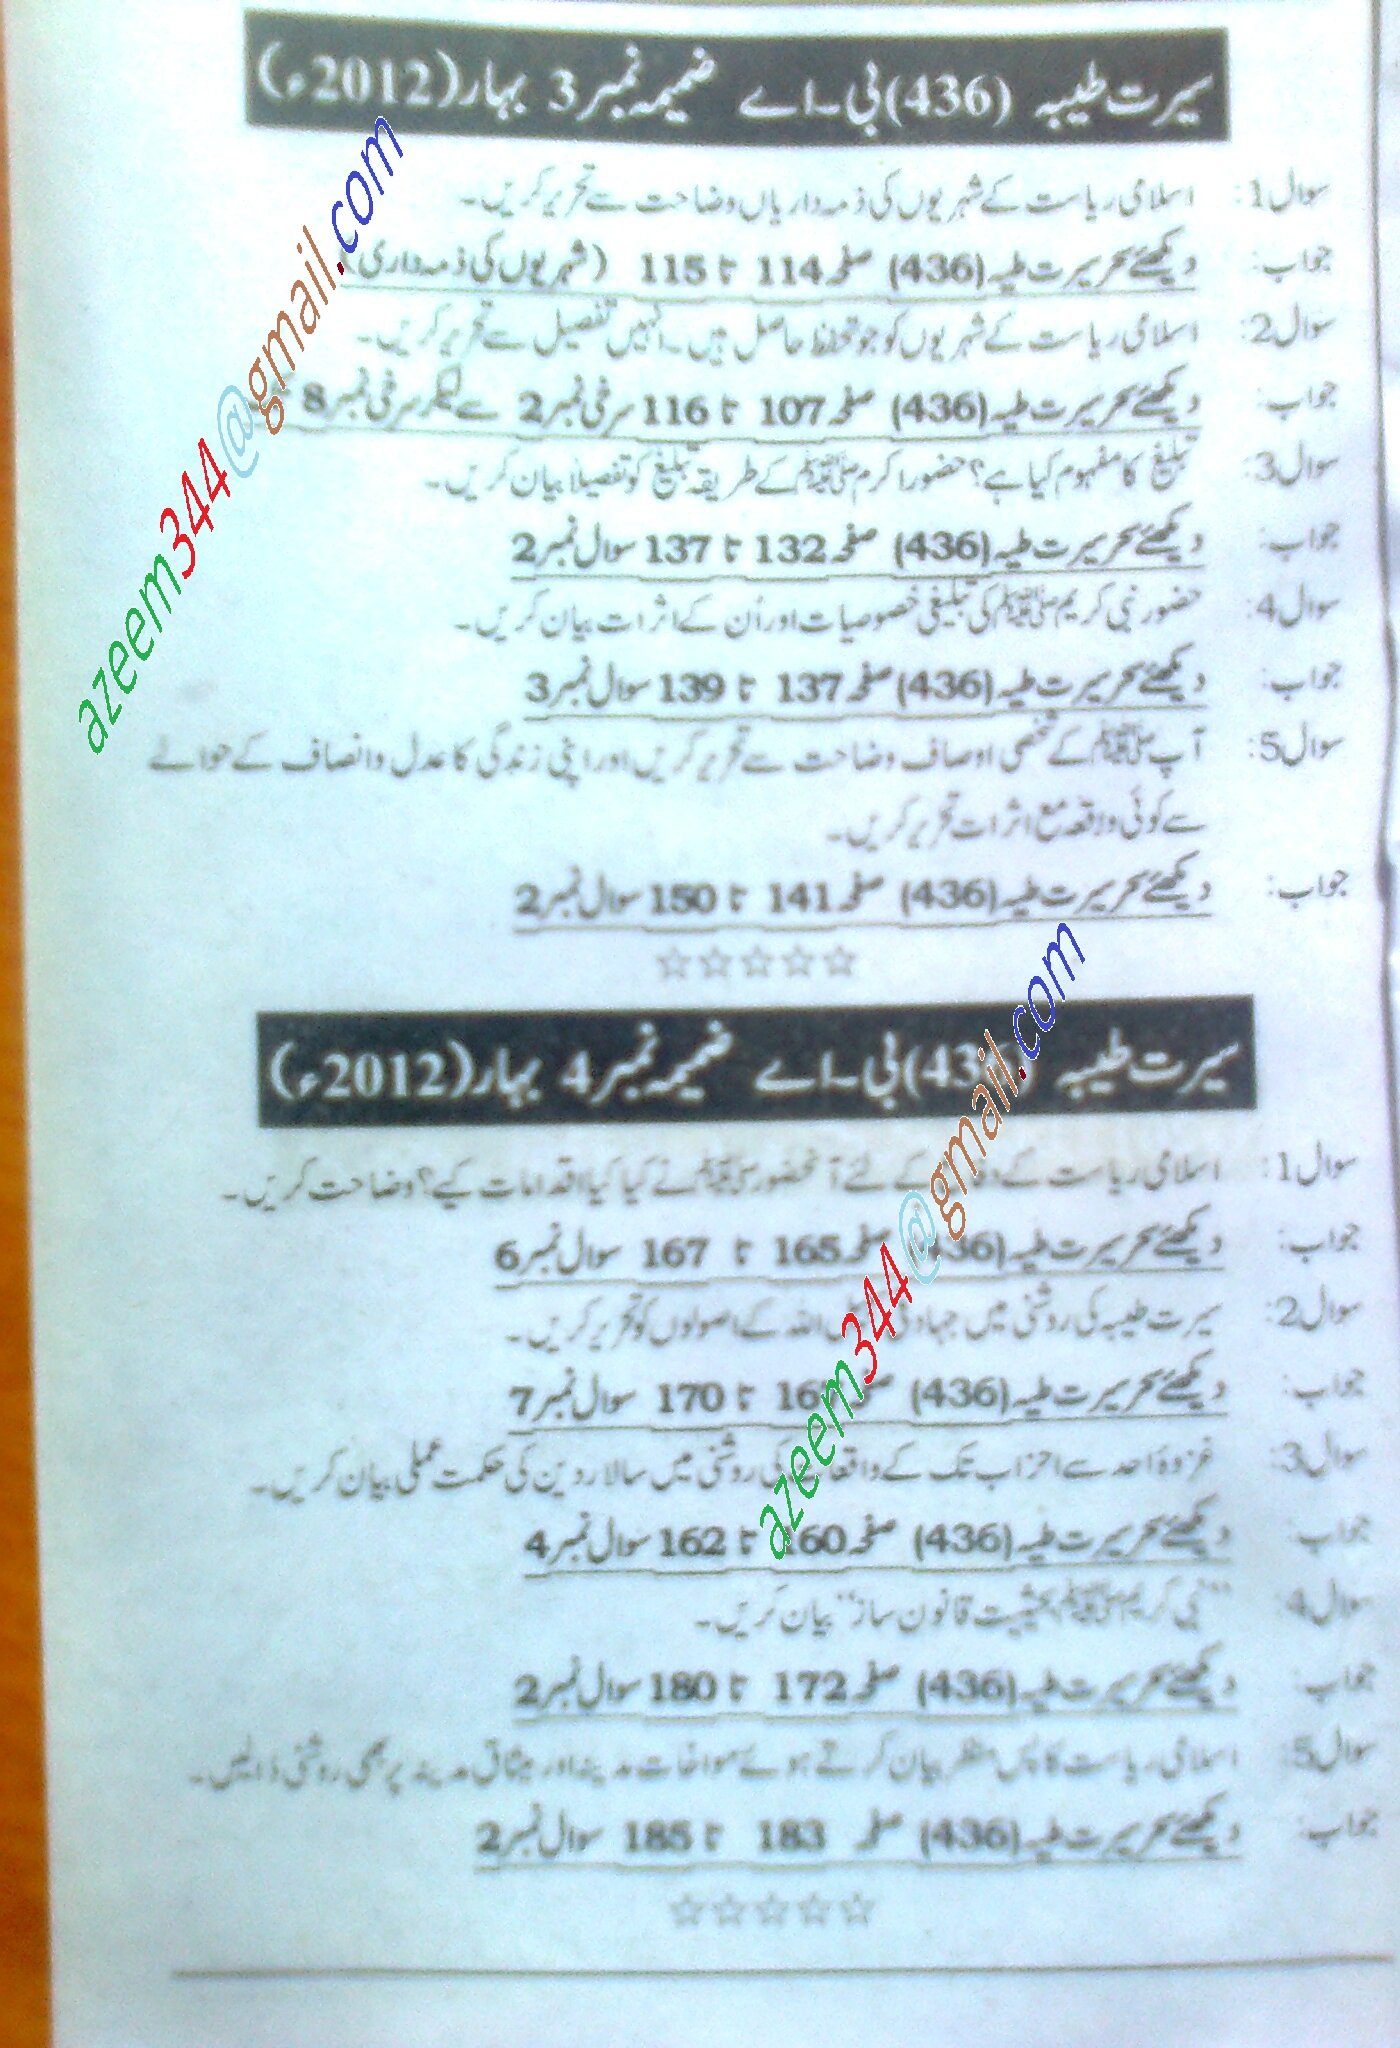 سیرت طیبہ (436) بی۔اے ضمیمہ نمبر 3 بہار (2012ء)
سوال 1: اسلامی ریاست کے شہریوں کی ذمہ داریاں وضاحت سے تحریر کریں۔
جواب: دیکھئے سحر سیرت طیبہ (436) صفحہ 114 تا 115 (شہریوں کی ذمہ داری)
سوال 2: اسلامی ریاست کے شہریوں کو جو تحفظ حاصل ہیں۔ انہیں تفصیل سے تحریر کریں۔
جواب: دیکھئے سحر سیرت طیبہ (436) صفحہ 107 تا 116 سرخی نمبر 2 سے لیکر سرخی نمبر 8
سوال 3: تبلیغ کا مفہوم کیا ہے؟ حضور اکرم ﷺ کے طریقہ تبلیغ کو تفصیلاً بیان کریں۔
جواب: دیکھئے سحر سیرت طیبہ (436) صفحہ 132 تا 137 سوال نمبر 2
سوال 4: حضور نبی کریم ﷺ کی تبلیغی خصوصیات اور اُن کے اثرات بیان کریں۔
جواب: دیکھئے سحر سیرت طیبہ (436) صفحہ 137 تا 139 سوال نمبر 3
سوال 5: آپ ﷺ کے شخصی اوصاف وضاحت سے تحریر کریں اور اپنی زندگی کا عدل و انصاف کے حوالے
سے کوئی واقعہ مع اثرات تحریر کریں۔
جواب: دیکھئے سحر سیرت طیبہ (436) صفحہ 141 تا 150 سوال نمبر 2
☆☆☆☆☆
سیرت طیبہ (43 بی۔اے ضمیمہ نمبر 4 بہار (2012ء)
سوال 1: اسلامی ریاست کے کے لئے آنحضور ﷺ نے کیا کیا اقدامات کیے؟ وضاحت کریں۔
جواب: دیکھئے سحر سیرت طیبہ 36) صفحہ 165 تا 167 سوال نمبر 6
سوال 2: سیرت طیبہ کی روشنی میں جہاد اللہ کے اصولوں کو تحریر کریں۔
جواب: دیکھئے سحر سیرت طیبہ (436) تا 170 سوال نمبر 7
سوال 3: غزوہ احد سے احزاب تک کے کی روشنی میں سالار دین کی حکمت عملی بیان کریں۔
جواب: دیکھئے سحر سیرت طیبہ (436) صفحہ 160 تا 162 سوال نمبر 4
سوال 4: "نبی کریم ﷺ بحیثیت قانون ساز" بیان کریں۔
جواب: دیکھئے سحر سیرت طیبہ (436) صفحہ 172 تا 180 سوال نمبر 2
سوال 5: اسلامی ریاست کا پس منظر بیان کرتے ہوئے مواخات مدینہ اور میثاق مدینہ پر بھی روشنی ڈالیں۔
جواب: دیکھئے سحر سیرت طیبہ (436) صفحہ 183 تا 185 سوال نمبر 2
☆☆☆☆☆
azeem344@gmail.com
azeem344@gmail.com